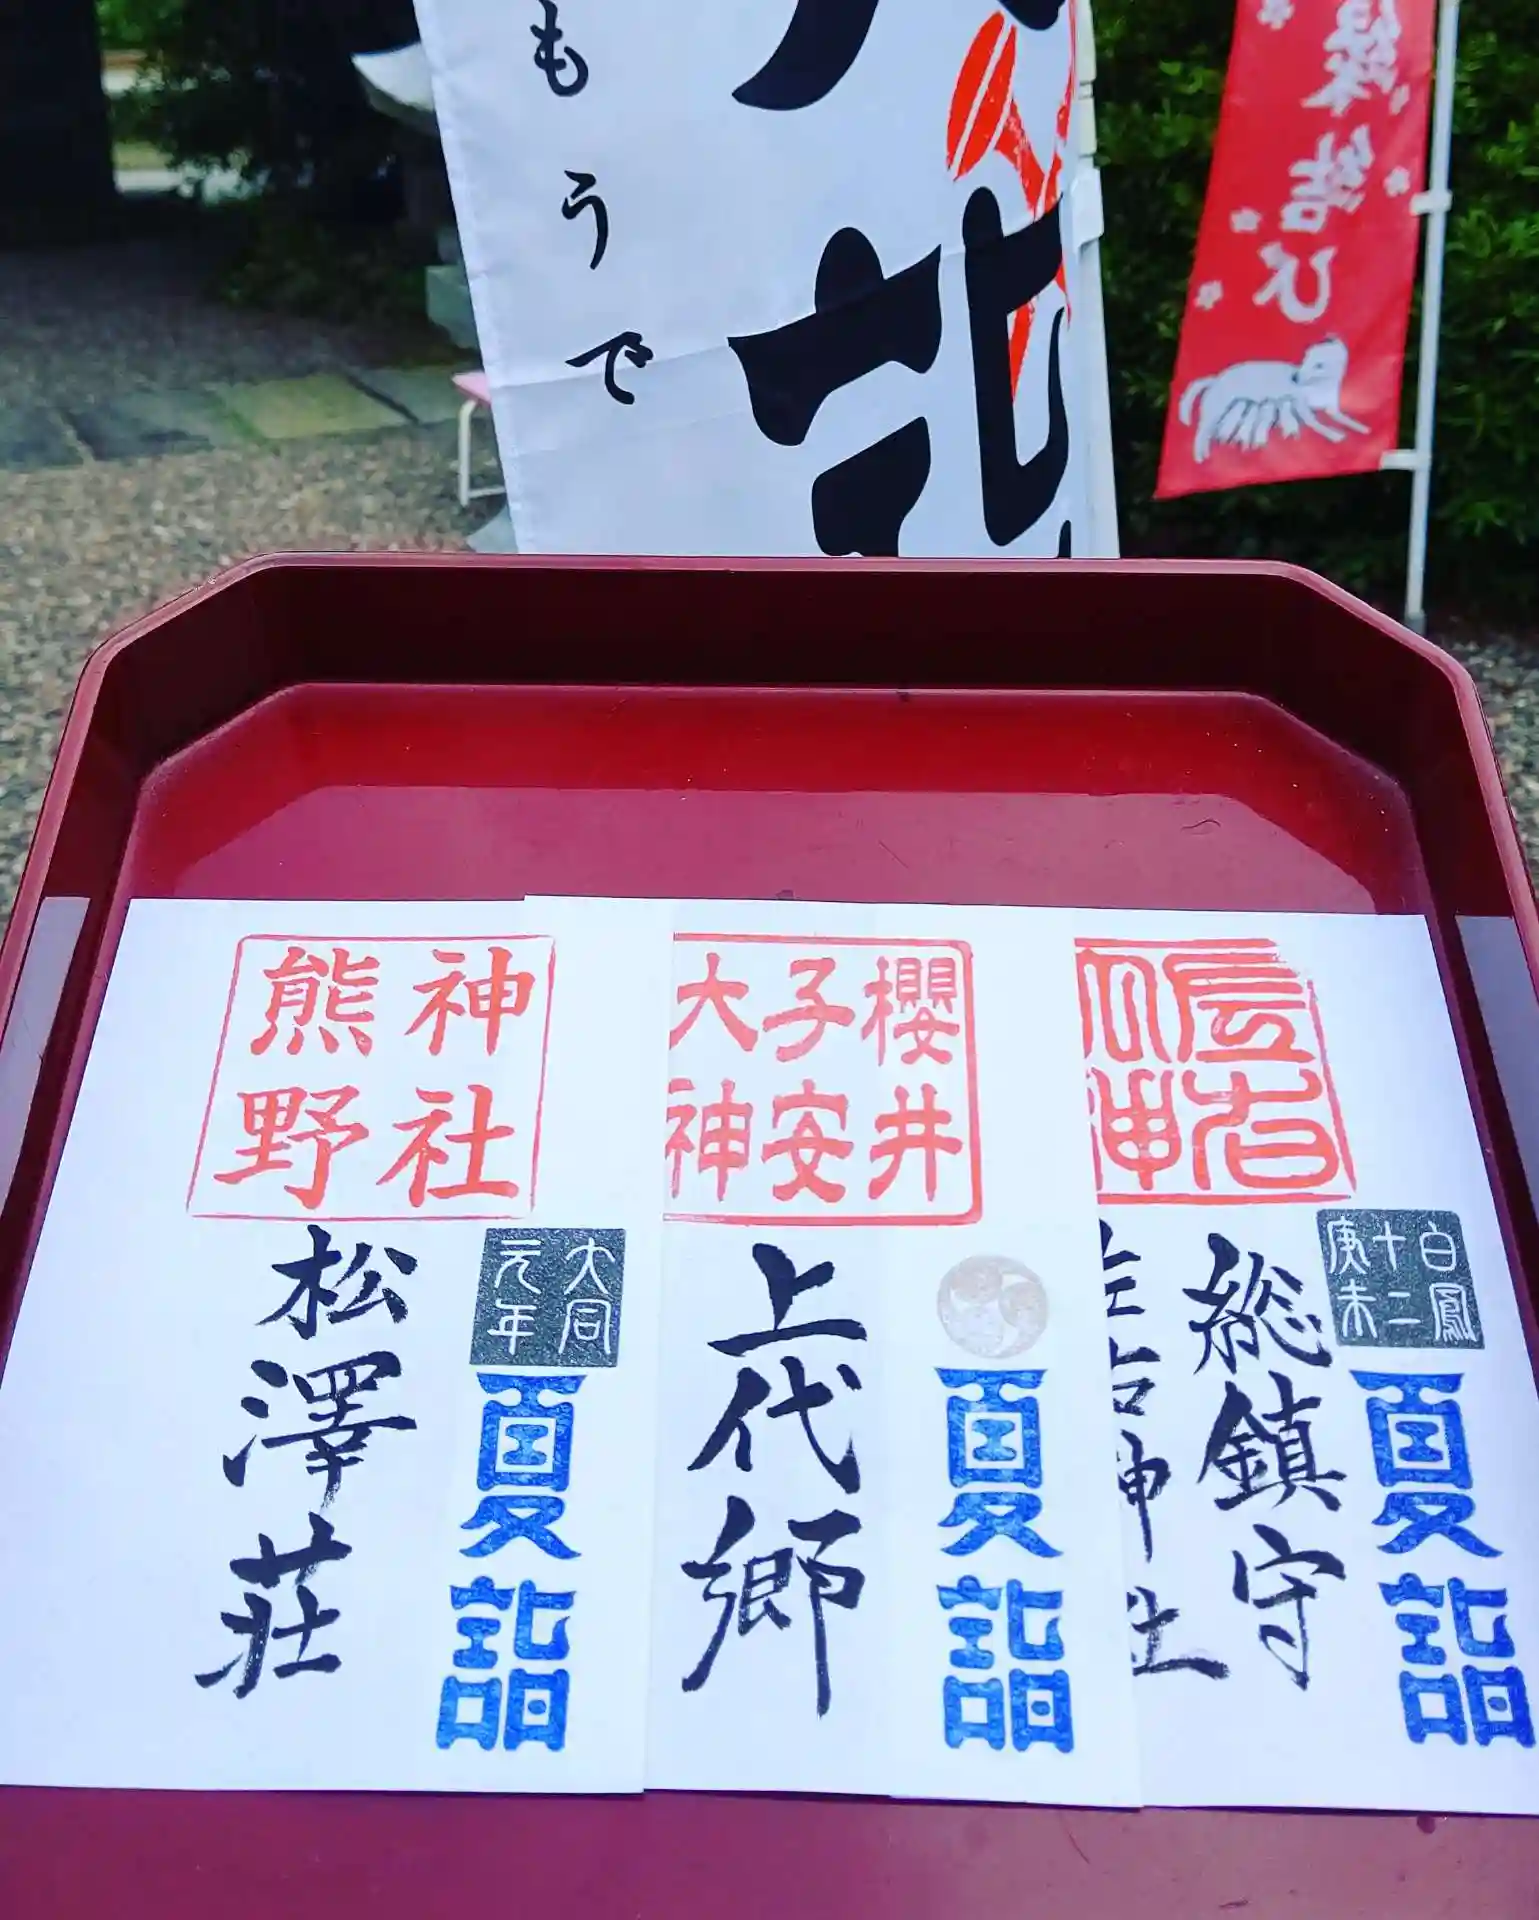 もうで
詣
縁結び
神社
熊野
大同
元年
夏詣
松澤荘
櫻井
子安
大神
夏詣
上代郷
白鳳
十二
庚未
夏詣
総鎮守
住吉神社